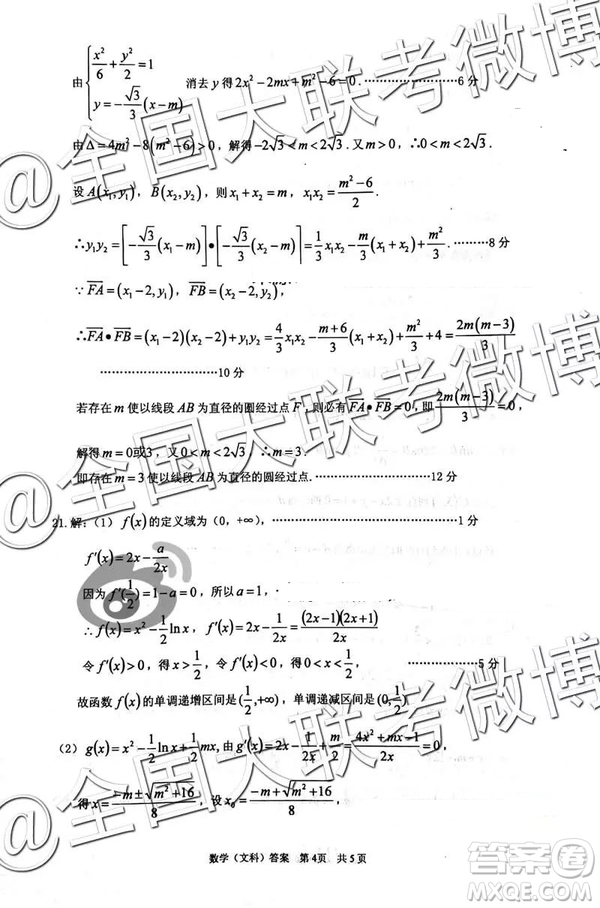 由{x²/6+y²/2=1
y=-√3/3(x-m)  消去y得2x²-2mx+m²-6=0. ………………6分
由Δ=4m²-8(m²-6)>0，解得-2√3<m<2√3.又m>0，∴0<m<2√3.
设A(x₁,y₁)，B(x₂,y₂)，则x₁+x₂=m，x₁x₂=(m²-6)/2.
∴y₁y₂=[-√3/3(x₁-m)]•[-√3/3(x₂-m)]=1/3x₁x₂-m/3(x₁+x₂)+m²/3. ………8分
∵FA=(x₁-2,y₁)，FB=(x₂-2,y₂)，
∴FA•FB=(x₁-2)(x₂-2)+y₁y₂=4/3x₁x₂-(m+6)/3(x₁+x₂)+m²/3+4=2m(m-3)/3
………………10分
若存在m使以线段AB为直径的圆经过点F，则必有FA•FB=0，即2m(m-3)/3=0，
解得m=0或3，又0<m<2√3，
即存在m=3使以线段AB为直径的圆经过点.………………12分
21.解：（1） f(x)的定义域为（0，+∞），………………1分
f′(x)=2x-a/2x
因为f′(1/2)=1-a=0，所以a=1，
∴f(x)=x²-1/2lnx，f′(x)=2x-1/2x=(2x-1)(2x+1)/2x
令f′(x)>0，得x>1/2，令f′(x)<0，得0<x<1/2， ………5分
故函数f(x)的单调递增区间是(1/2,+∞)，单调递减区间是(0,1/2)
（2）g(x)=x²-1/2lnx+1/2mx,由g′(x)=2x-1/2x+m/2=(4x²+mx-1)/2x=0，
得x=(-m±√(m²+16))/8，设x₀=(-m+√(m²+16))/8，
数学（文科）答案 第4页 共5页
@全国大联考微博
@全国大联考微博
答案圈
MXQE.COM